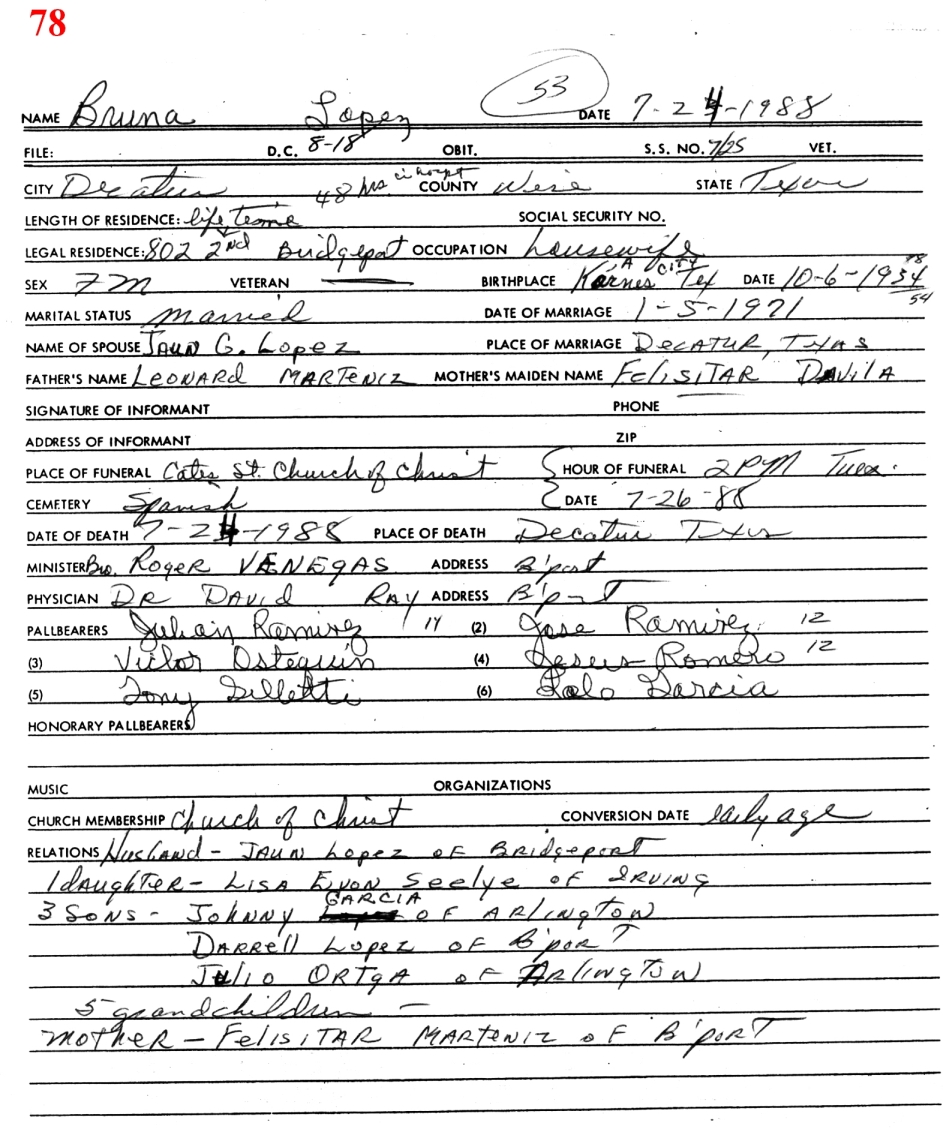 78
53
NAME Bruna Lopez DATE 7-24-1988
FILE: D.C. 8-18 OBIT. S.S. NO. 7/25 VET.
CITY Decatur 48 hrs in hospt COUNTY Wise STATE Texas
LENGTH OF RESIDENCE: life SOCIAL SECURITY NO.
LEGAL RESIDENCE: 802 2nd Bridgeport OCCUPATION housewife
SEX Fm VETERAN — BIRTHPLACE Karnes City Tex DATE 10-6-1934
54
MARITAL STATUS married DATE OF MARRIAGE 1-5-1971
NAME OF SPOUSE JAUN G. Lopez PLACE OF MARRIAGE DECATUR, TEXAS
FATHER'S NAME LEONARD MARTENIZ MOTHER'S MAIDEN NAME FELISITAR DAVILA
SIGNATURE OF INFORMANT PHONE
ADDRESS OF INFORMANT ZIP
PLACE OF FUNERAL Cates St. Church of Christ HOUR OF FUNERAL 2 PM Tues.
CEMETERY Spanish DATE 7-26-88
DATE OF DEATH 7-24-1988 PLACE OF DEATH Decatur Texas
MINISTER Bro. ROGER VENEGAS ADDRESS B'port
PHYSICIAN DR DAVID RAY ADDRESS B'port
PALLBEARERS Julian Ramirez 14 (2) Jose Ramirez 12
(3) Victor Osteguin (4) Jesus Romero 12
(5) Tony Gilletti (6) Lalo Garcia
HONORARY PALLBEARERS
MUSIC ORGANIZATIONS
CHURCH MEMBERSHIP Church of Christ CONVERSION DATE early age
RELATIONS Husband - JAUN Lopez OF BRIDGEPORT
1 DAUGHTER - LISA EVON Seelye OF IRVING
3 SONS - JOHNNY GARCIA OF ARLINGTON
DARRELL LOPEZ OF B'PORT
JULIO ORTGA OF ARLINGTON
5 grandchildren —
MOTHER - FELISITAR MARTENIZ OF B'PORT